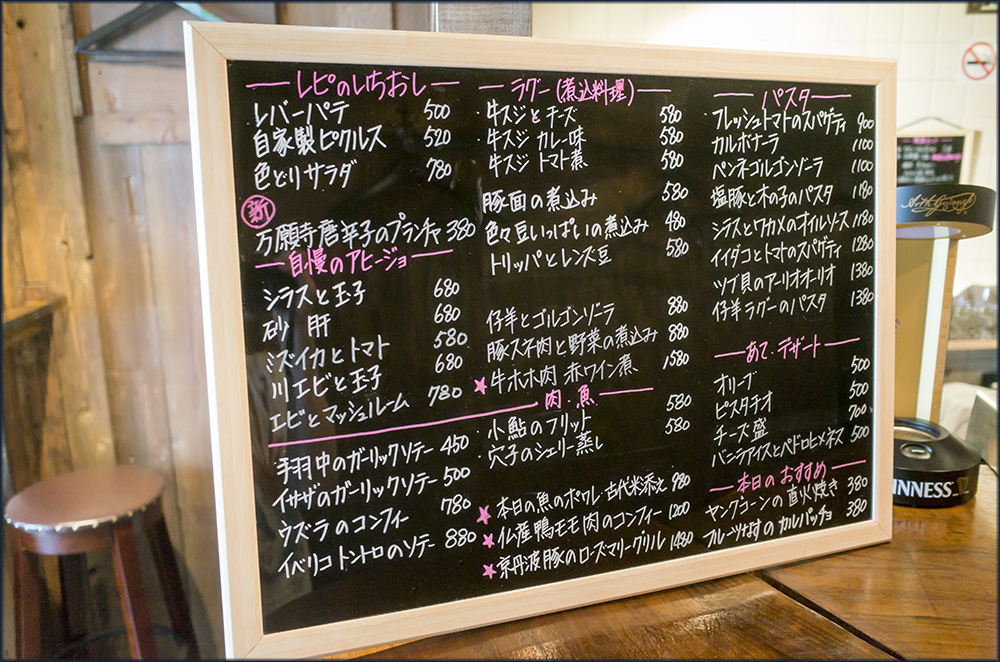 レピのいちおし
レバーパテ 500
自家製ピクルス 520
色どりサラダ 780
新
万願寺唐辛子のプランチャ 380
自慢のアヒージョ
シラスと玉子 680
砂肝 680
ミズイカとトマト 580
川エビと玉子 680
エビとマッシュルーム 780
手羽中のガーリックソテー 450
イサザのガーリックソテー 500
ウズラのコンフィー 780
イベリコトントロのソテー 880
ラグー(煮込料理)
牛スジとチーズ 580
牛スジ カレー味 580
牛スジ トマト煮 580
豚面の煮込み 580
色々豆いっぱいの煮込み 480
トリッパとレンズ豆 580
仔羊とゴルゴンゾーラ 880
豚スネ肉と野菜の煮込み 880
★牛ホホ肉 赤ワイン煮 1580
肉・魚
小鮎のフリット 580
穴子のシェリー蒸し 580
★本日の魚のポワレ・古代米添え 980
★仏産鴨モモ肉のコンフィー 1200
★京丹波豚のローズマリーグリル 1480
パスタ
フレッシュトマトのスパゲティ 900
カルボナーラ 1100
ペンネゴルゴンゾーラ 1100
塩豚と木の子のパスタ 1180
シラスとワカメのオイルソース 1180
イイダコとトマトのスパゲティ 1280
ツブ貝のアーリオオーリオ 1380
仔羊ラグーのパスタ 1380
あて・デザート
オリーブ 500
ピスタチオ 500
チーズ盛 700
バニラアイスとペドロヒメネス 500
本日のおすすめ
ヤングコーンの直火焼き 380
フルーツなすのカルパッチョ 380
INNESS